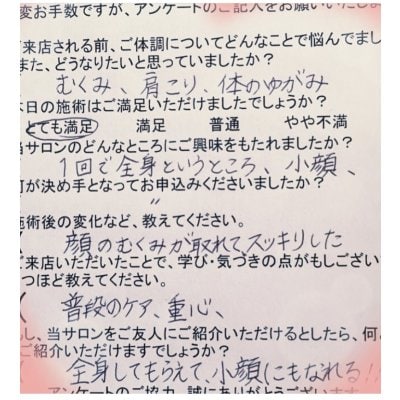 変お手数ですが、アンケートのご記入をお願いいたしま
ご来店される前、ご体調についてどんなことで悩んでまし
また、どうなりたいと思っていましたか？
むくみ、肩こり、体のゆがみ
本日の施術はご満足いただけましたでしょうか？
とても満足 満足 普通 やや不満
当サロンのどんなところにご興味をもたれましたか？
1回で全身というところ、小顔、
何が決め手となってお申込みくださいましたか？
〃
施術後の変化など、教えてください。
顔のむくみが取れてスッキリした
ご来店いただいたことで、学び・気づきの点がもしござい
つほど教えてください。
普段のケア、重心、
もし、当サロンをご友人にご紹介いただけるとしたら、何
ご紹介いただけますでしょうか？
全身してもらえて、小顔にもなれる!!
アンケートのご協力、誠にありがとうございます